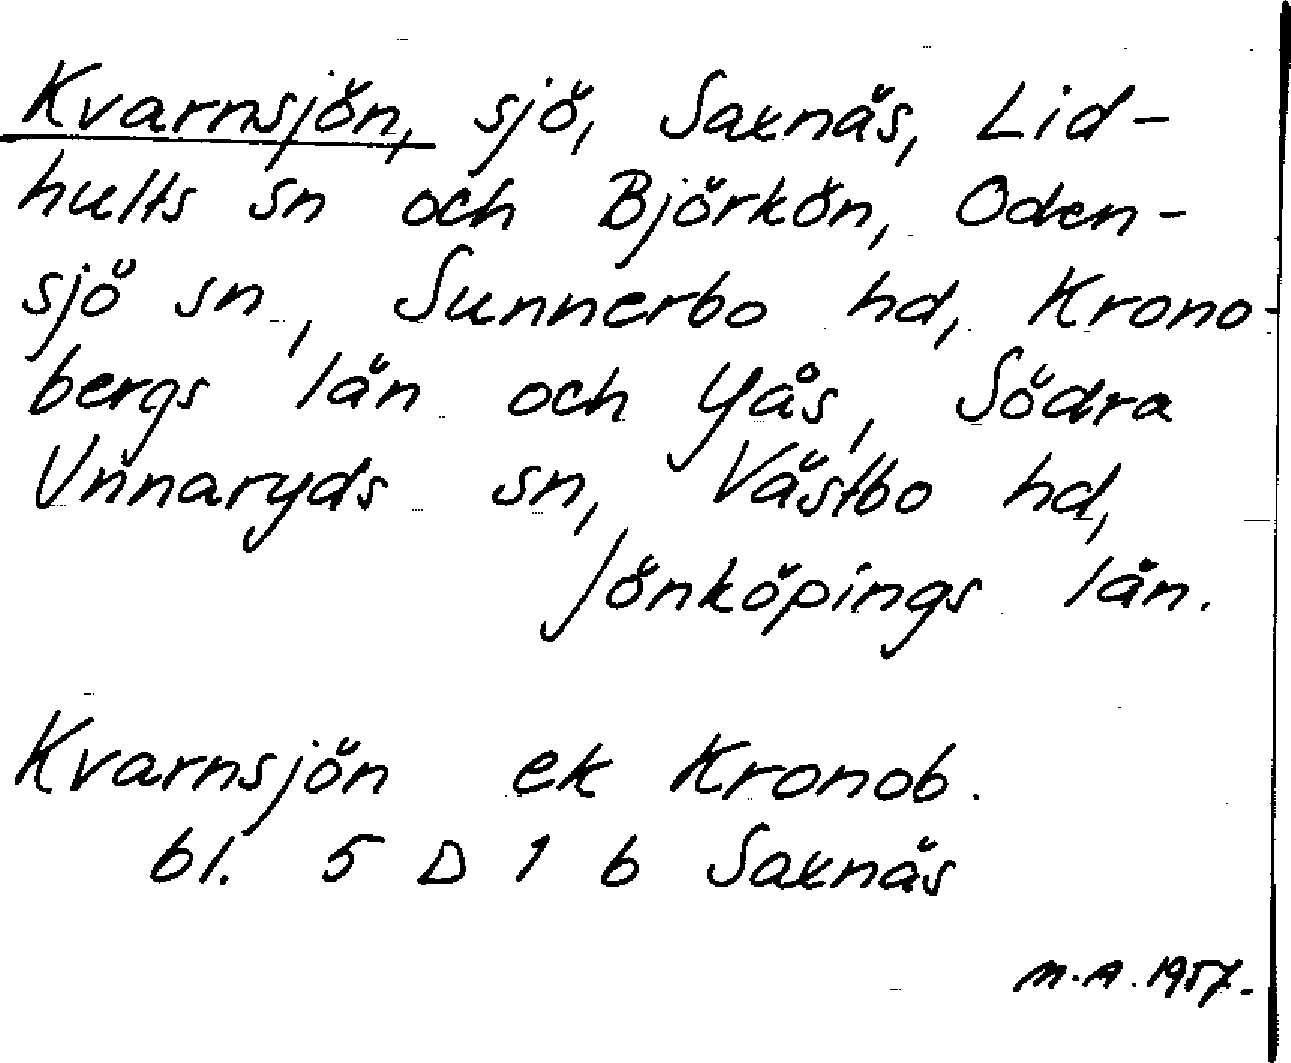 Kvarnsjön, sjö, Saxnäs, Lid-
hults sn och Björkön, Oden-
sjö sn, Sunnerbo hd, Krono-
bergs län och Yås, Södra
Unnaryds sn, Västbo hd,
Jönköpings län.
Kvarnsjön ek Kronob.
bl. 5 D 1 b Saxnäs
M.A. 1957.